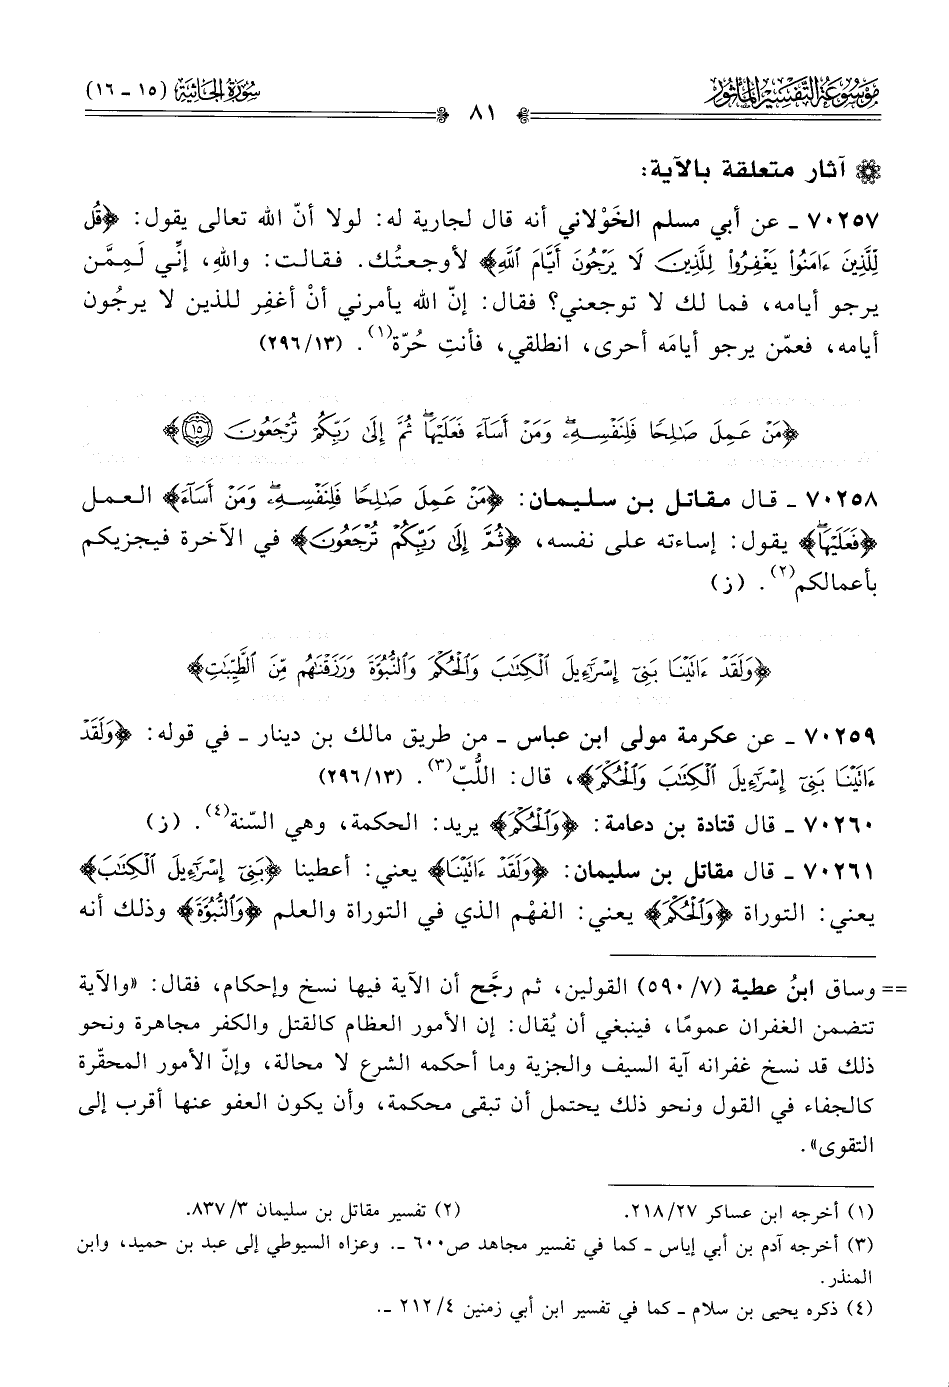 موسوعة التفسير المأثور
سورة الجاثية (١٥ - ١٦)
٨١
آثار متعلقة بالآية:
٧٠٢٥٧ - عن أبي مسلم الخَوْلاني أنه قال لجارية له: لولا أنّ الله تعالى يقول: ﴿قُل
لِّلَّذِينَ ءَامَنُوا۟ يَغْفِرُوا۟ لِلَّذِينَ لَا يَرْجُونَ أَيَّامَ ٱللَّهِ﴾ لأوجعتُك. فقالت: واللهِ، إنِّي لَمِمَّن
يرجو أيامه، فما لك لا توجعني؟ فقال: إنّ الله يأمرني أنْ أغفِر للذين لا يرجُون
أيامه، فعمّن يرجو أيامَه أحرى، انطلقي، فأنتِ حُرّة(١). (٢٩٦/١٣)
﴿مَنْ عَمِلَ صَٰلِحًا فَلِنَفْسِهِۦ وَمَنْ أَسَآءَ فَعَلَيْهَا ثُمَّ إِلَىٰ رَبِّكُمْ تُرْجَعُونَ ١٥﴾
٧٠٢٥٨ - قال مقاتل بن سليمان: ﴿مَنْ عَمِلَ صَٰلِحًا فَلِنَفْسِهِۦ وَمَنْ أَسَآءَ﴾ العمل
﴿فَعَلَيْهَا﴾ يقول: إساءته على نفسه، ﴿ثُمَّ إِلَىٰ رَبِّكُمْ تُرْجَعُونَ﴾ في الآخرة فيجزيكم
بأعمالكم(٢). (ز)
﴿وَلَقَدْ ءَاتَيْنَا بَنِىٓ إِسْرَٰٓءِيلَ ٱلْكِتَٰبَ وَٱلْحُكْمَ وَٱلنُّبُوَّةَ وَرَزَقْنَٰهُم مِّنَ ٱلطَّيِّبَٰتِ﴾
٧٠٢٥٩ - عن عكرمة مولى ابن عباس - من طريق مالك بن دينار - في قوله: ﴿وَلَقَدْ
ءَاتَيْنَا بَنِىٓ إِسْرَٰٓءِيلَ ٱلْكِتَٰبَ وَٱلْحُكْمَ﴾، قال: اللُّبّ(٣). (٢٩٦/١٣)
٧٠٢٦٠ - قال قتادة بن دعامة: ﴿وَٱلْحُكْمَ﴾ يريد: الحكمة، وهي السّنة(٤). (ز)
٧٠٢٦١ - قال مقاتل بن سليمان: ﴿وَلَقَدْ ءَاتَيْنَا﴾ يعني: أعطينا ﴿بَنِىٓ إِسْرَٰٓءِيلَ ٱلْكِتَٰبَ﴾
يعني: التوراة ﴿وَٱلْحُكْمَ﴾ يعني: الفهْم الذي في التوراة والعلم ﴿وَٱلنُّبُوَّةَ﴾ وذلك أنه
== وساق ابنُ عطية (٧/ ٥٩٠) القولين، ثم رجَّح أن الآية فيها نسخ وإحكام، فقال: «والآية
تتضمن الغفران عمومًا، فينبغي أن يُقال: إن الأمور العظام كالقتل والكفر مجاهرة ونحو
ذلك قد نسخ غفرانه آية السيف والجزية وما أحكمه الشرع لا محالة، وإنّ الأمور المحقّرة
كالجفاء في القول ونحو ذلك يحتمل أن تبقى محكمة، وأن يكون العفو عنها أقرب إلى
التقوى».
(١) أخرجه ابن عساكر ٢٧/ ٢١٨.
(٢) تفسير مقاتل بن سليمان ٣/ ٨٣٧.
(٣) أخرجه آدم بن أبي إياس - كما في تفسير مجاهد ص٦٠٠ -. وعزاه السيوطي إلى عبد بن حميد، وابن
المنذر.
(٤) ذكره يحيى بن سلام - كما في تفسير ابن أبي زمنين ٤/ ٢١٢ -.